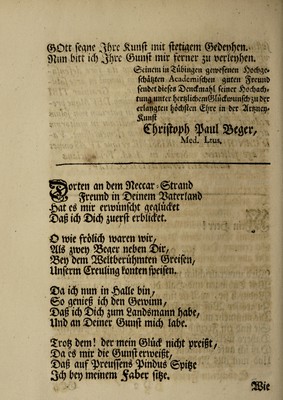 GOtt segne Jhre Kunst mit stetigem Gedeyhen.
Nun bitt ich Jhre Gunst mir ferner zu verleyhen.
Seinem in Tübingen gewesenen Hochge-
schätzten Academischen guten Freund
sendet dieses Denckmahl seiner Hochach-
tung unter hertzlichem Glückwunsch zu der
erlangten höchsten Ehre in der Artzney-
Kunst
Christoph Paul Beger,
Med. Ltus.
Dorten an dem Neccar-Strand
Freund in Deinem Vaterland
Hat es mir erwünscht geglücket
Daß ich Dich zuerst erblicket.
O wie frölich waren wir,
Als zwey Beger neben Dir,
Bey dem Weltberühmten Greisen,
Unserm Creuling konten speisen.
Da ich nun in Halle bin,
So genieß ich den Gewinn,
Daß ich Dich zum Landsmann habe,
Und an Deiner Gunst mich labe.
Trotz dem! der mein Glück nicht preißt,
Da es mir die Gunst erweißt,
Daß auf Preussens Pindus Spitze
Jch bey meinem Faber sitze.
Wie